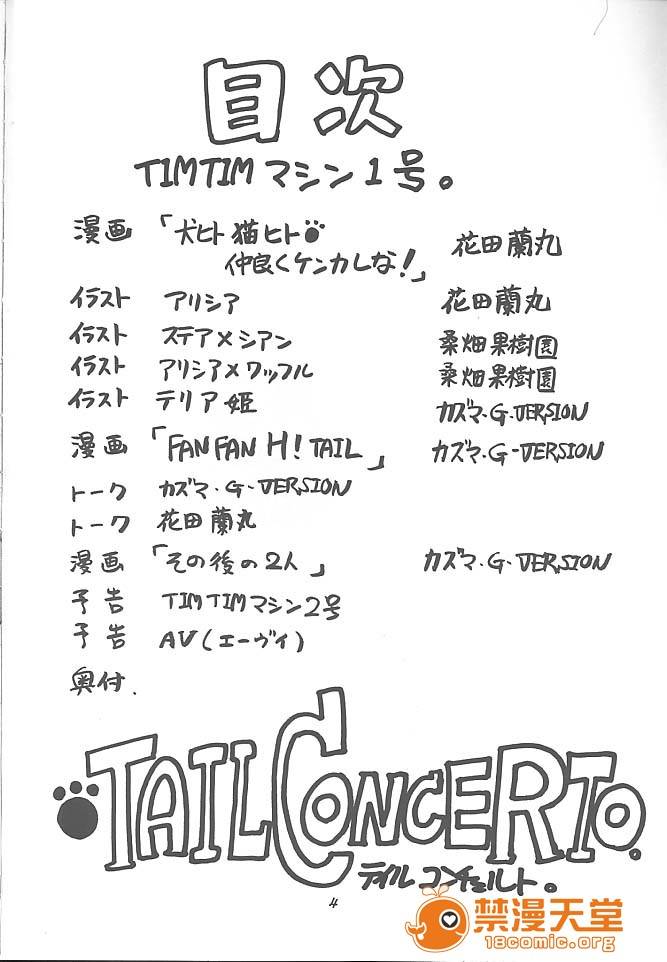 目次
TIMTIMマシン1号。
漫画 「犬ヒト猫ヒト
仲良くケンカしな!」 花田蘭丸
イラスト アリシア 花田蘭丸
イラスト ステア×シアン 桑畑果樹園
イラスト アリシア×ワッフル 桑畑果樹園
イラスト テリア姫 カズマ・G・VERSION
漫画 「FANFAN H! TAIL」 カズマ・G-VERSION
トーク カズマ・G-VERSION
トーク 花田蘭丸
漫画 「その後の2人」 カズマ・G-VERSION
予告 TIMTIMマシン2号
予告 AV(エーヴィ)
奥付.
TAIL CONCERTO.
テイルコンチェルト。
4
禁漫天堂
18comic.org